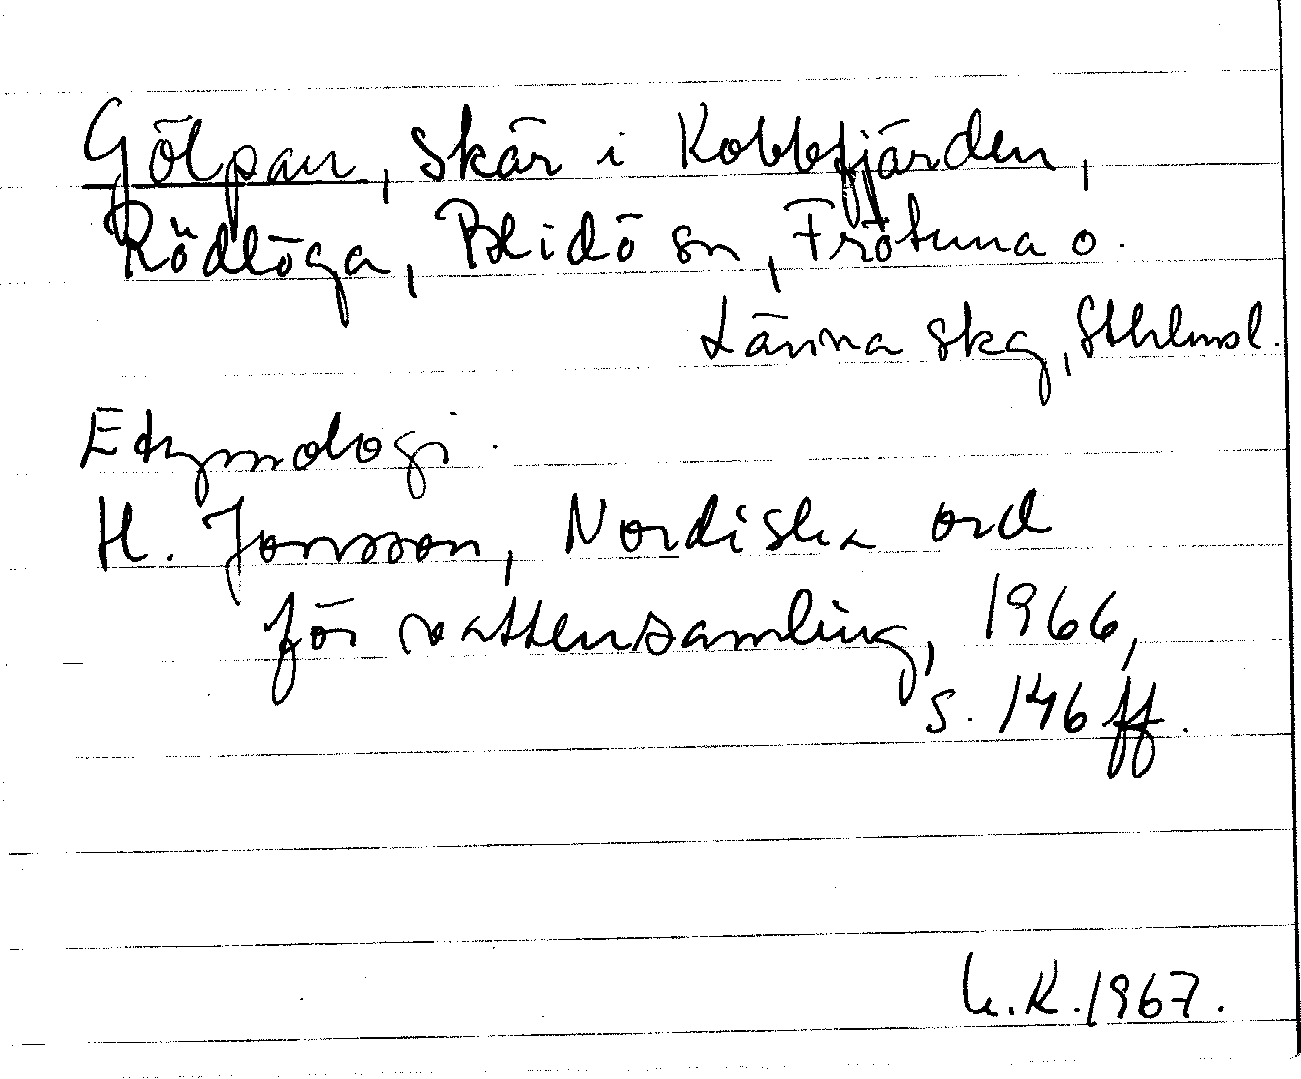 Gölpan, skär i Kobbfjärden,
Rödlöga, Blidö sn, Frötuna o.
Länna skg, Sthlmsl.
Etymologi.
H. Jonsson, Nordiska ord
för vattensamling, 1966,
s. 146 ff.
K. 1967.